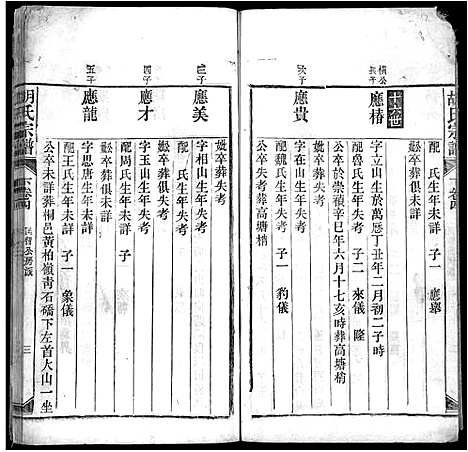 胡氏宗譜
配 氏生年未詳 子一 應舉
妣卒葬失考
十七世
橫公
長子
應椿
字立山生於萬厯丁丑年二月初二子時
配魯氏生年未詳 子二 來儀 隆
公卒於崇禎辛巳年六月十七亥時葬高塘梢
妣卒葬俱失考
次子
應貴
字在山生年失考
配魏氏生年未詳 子一 豹儀
公卒失考葬高塘梢
妣卒葬失考
三子
應美
字相山生年失考
配 氏生年未詳
妣卒葬俱失考
四子
應才
字玉山生年失考
配周氏生年未詳 子
妣卒葬俱失考
五子
應龍
字思唐生年失考
配王氏生年未詳 子一 象儀
公卒未詳葬桐邑黃柏嶺靑石磡下左首大山一坐
胡氏宗譜
三